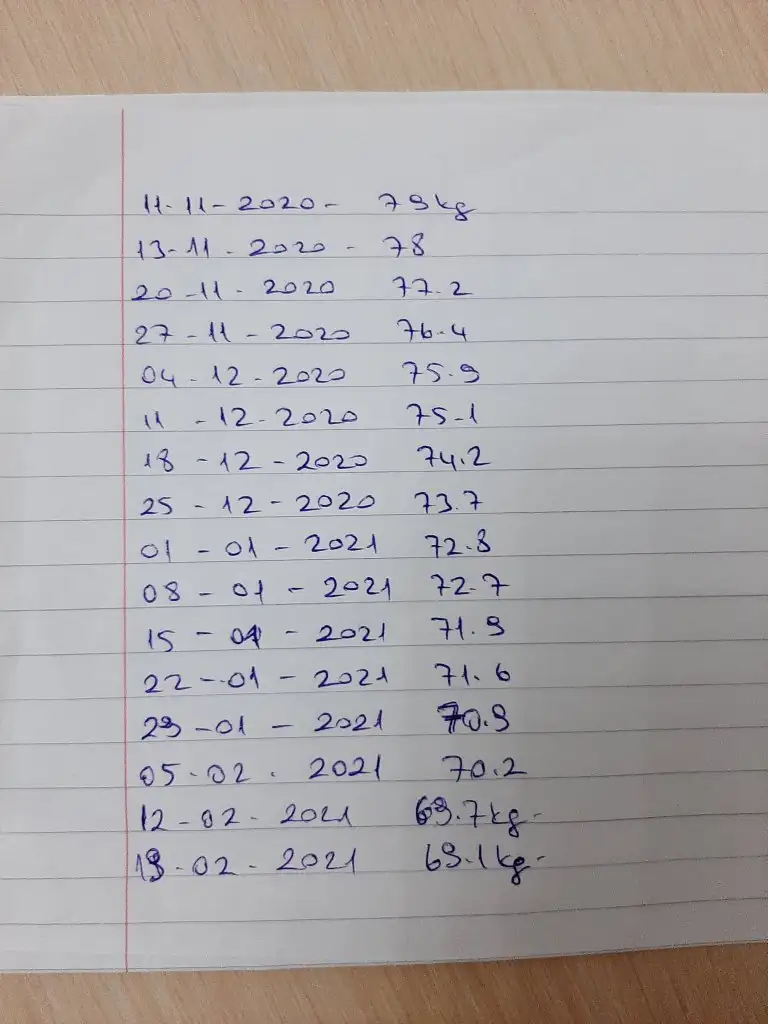 11-11-2020- 79kg
13-11-2020- 78
20-11-2020 77.2
27-11-2020 76.4
04-12-2020 75.9
11-12-2020 75.1
18-12-2020 74.2
25-12-2020 73.7
01-01-2021 72.8
08-01-2021 72.7
15-01-2021 71.9
22-01-2021 71.6
29-01-2021 70.9
05-02.2021 70.2
12-02-2021 69.7kg-
19-02-2021 69.1kg-